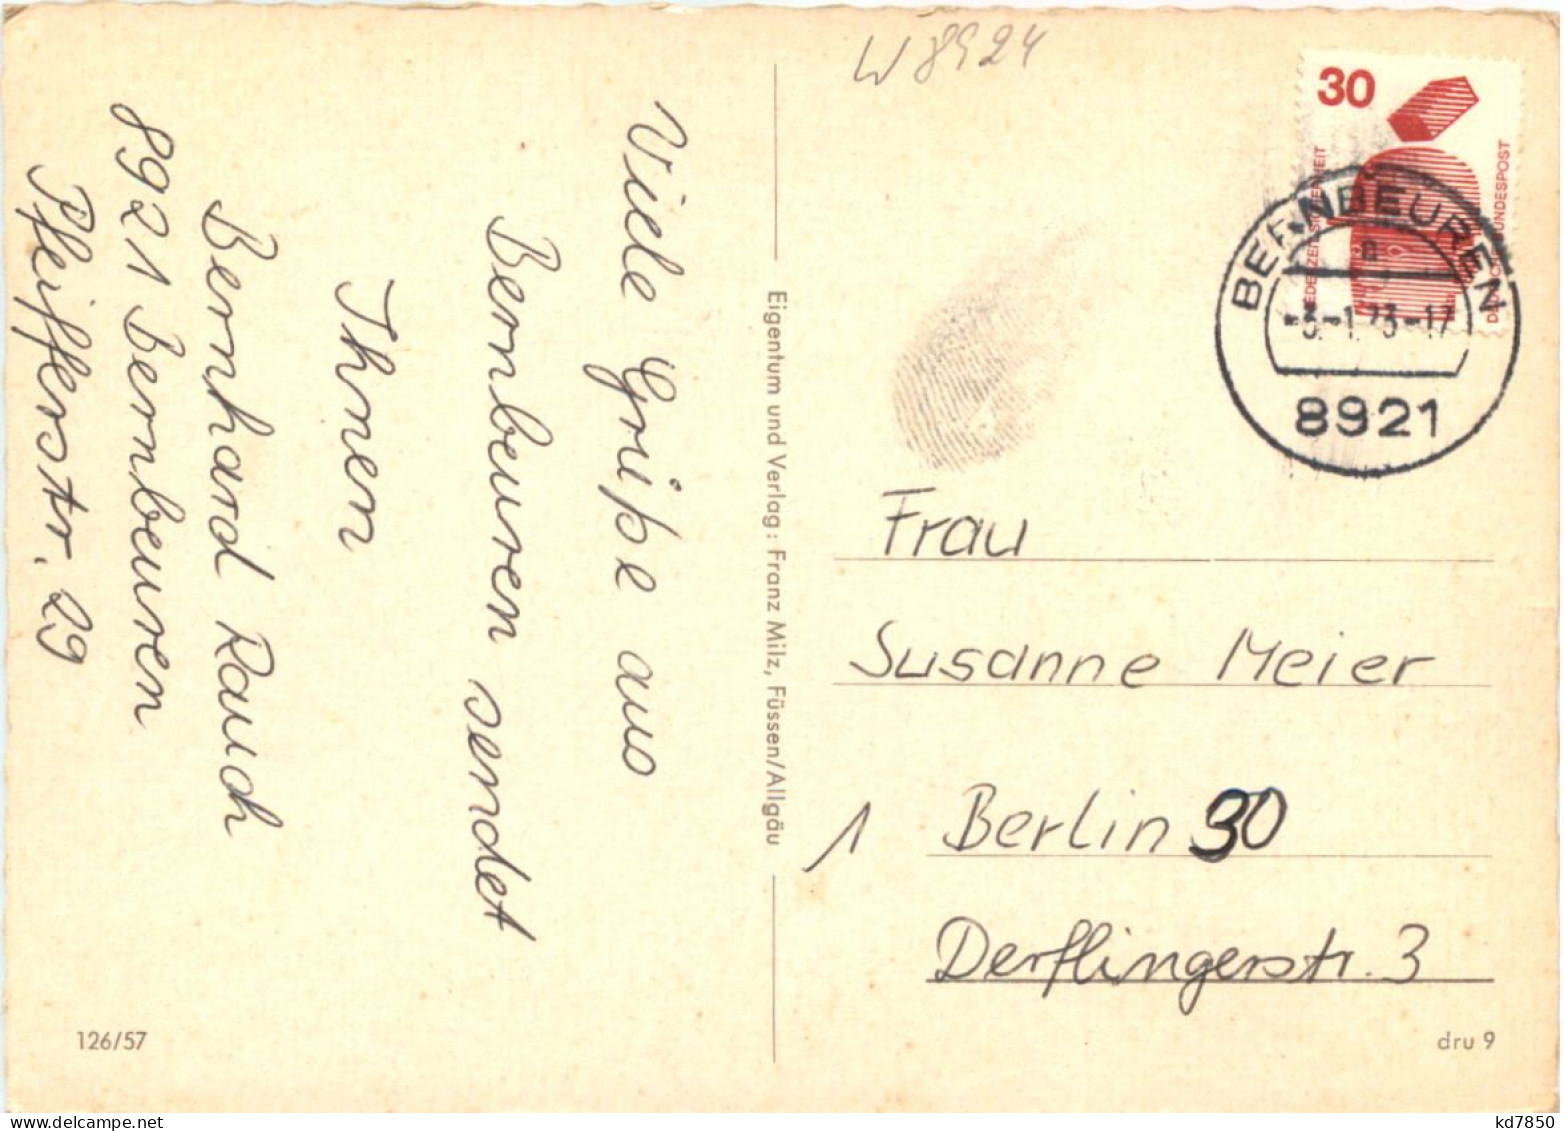 W 8924
30
JEDERZEIT SICHERHEIT
BUNDESPOST
BERNBEUREN
a
-3.-1.73-17
8921
Viele Grüße aus
Bernbeuren sendet
Ihnen
Bernhard Rauch
8921 Bernbeuren
Pfeifferstr. 29
Eigentum und Verlag: Franz Milz, Füssen/Allgäu
Frau
Susanne Meier
1 Berlin 30
Derfflingerstr. 3
126/57
dru 9
kd7850